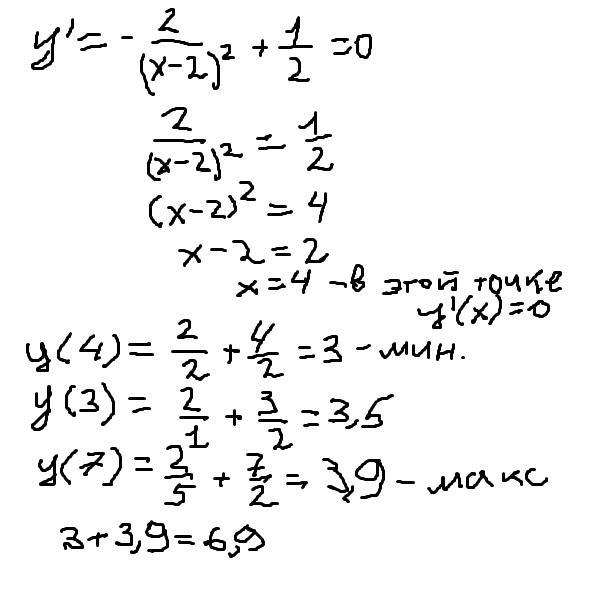 y' = - 2/(x-2)² + 1/2 = 0
2/(x-2)² = 1/2
(x-2)² = 4
x - 2 = 2
x = 4 - в этой точке
y'(x) = 0
y(4) = 2/2 + 4/2 = 3 - мин.
y(3) = 2/1 + 3/2 = 3,5
y(7) = 2/5 + 7/2 = 3,9 - макс
3 + 3,9 = 6,9